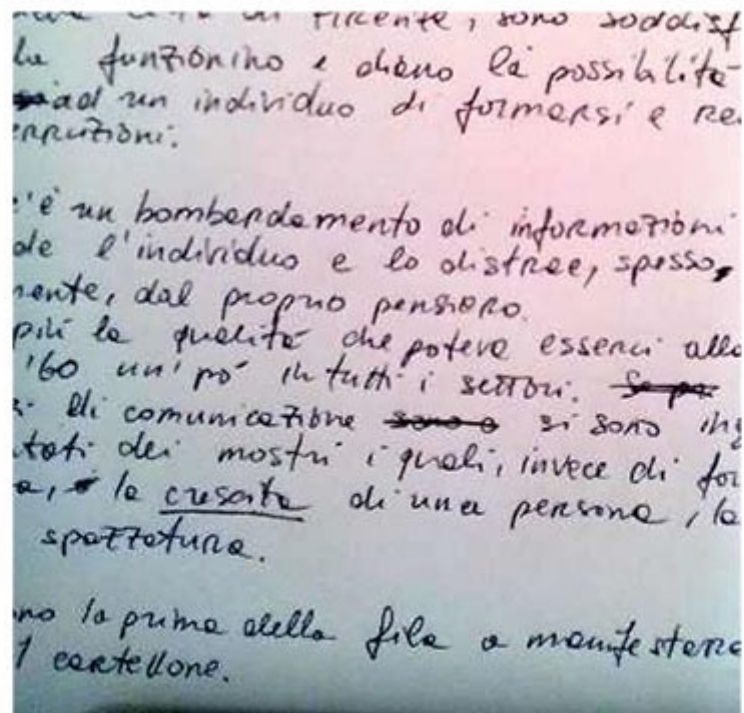 città di Firenze, sono soddisf
la funzionino e diano la possibilità
ad un individuo di formarsi e re
erruzioni.
c'è un bombardamento di informazioni
de l'individuo e lo distrae, spesso,
mente, dal proprio pensiero.
più la qualità che poteva esserci allo
'60 un' pò in tutti i settori.
i di comunicazione si sono ing
tati dei mostri i quali, invece di for
a, la crescita di una persona, la
spazzatura.
no la prima della fila a manifestare
1 cartellone.